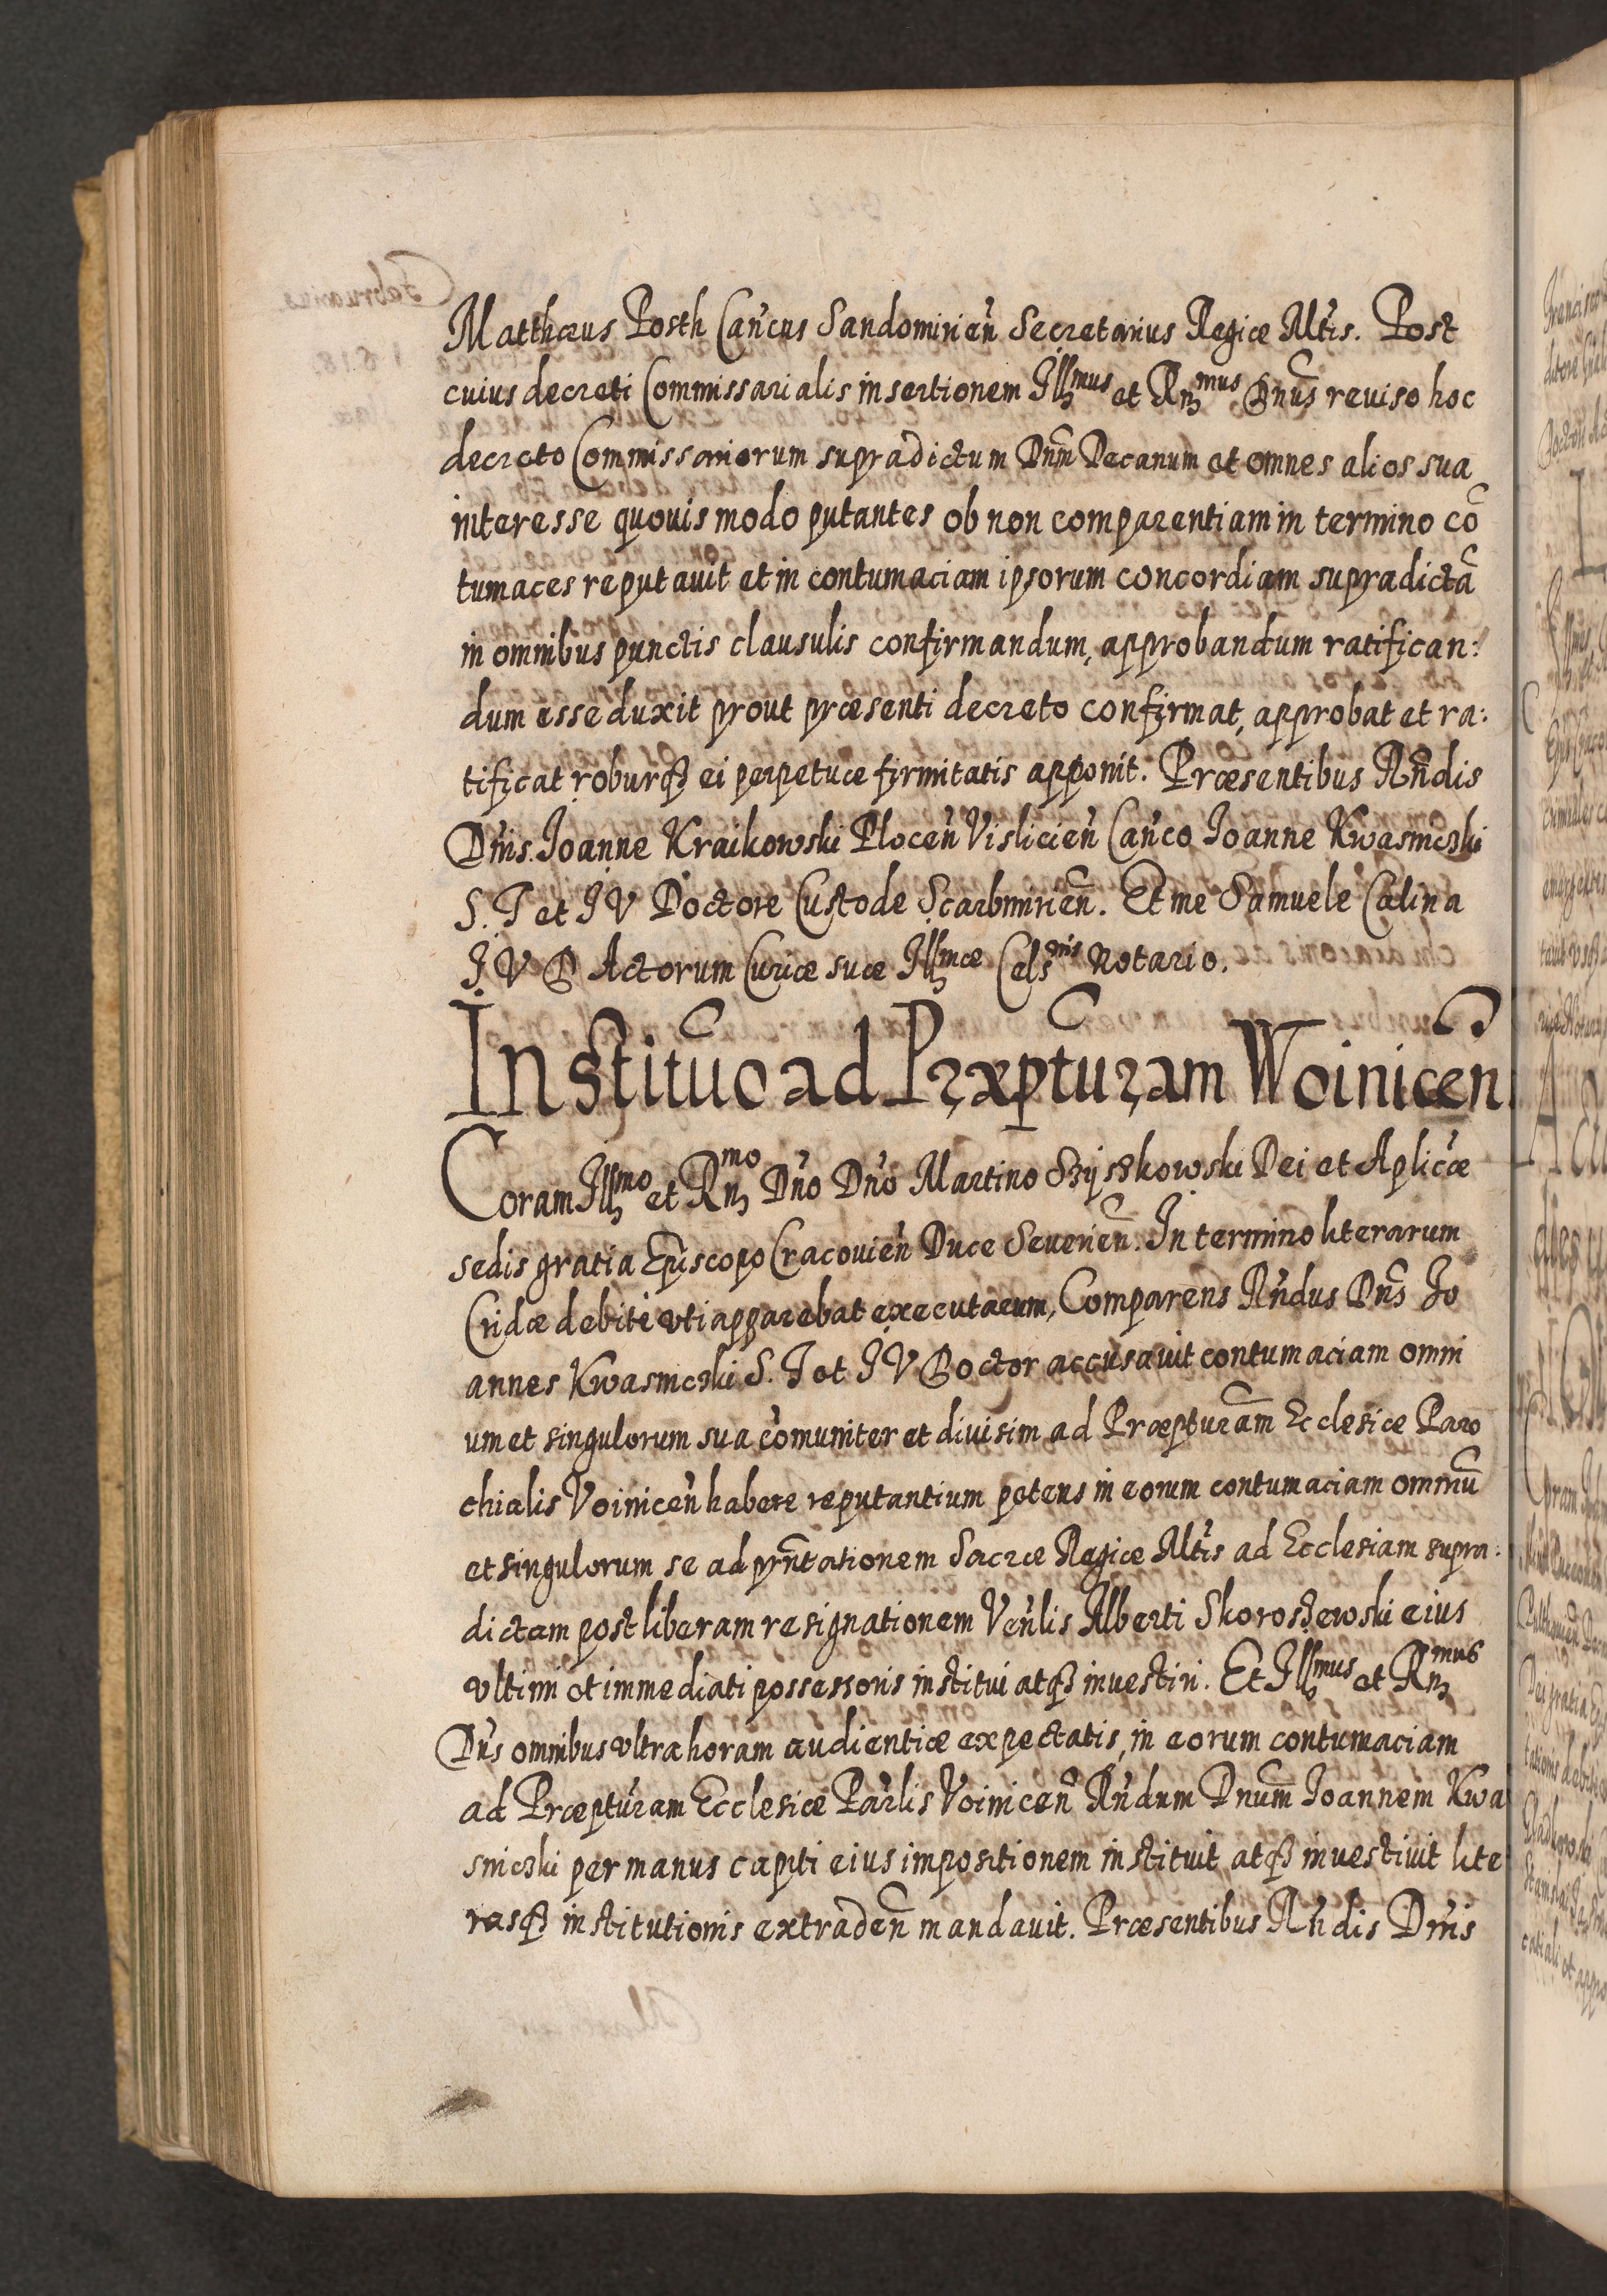 Matthæus Posth Cañcus Sandomirień Secretarius Regiæ Mtis. Post
cuius decreti Commissarialis insertionem Illmus et Rmus Dnus reuiso hoc
decreto Commissariorum supradictum Dnm Decanum et omnes alios sua
interesse quouis modo putantes ob non comparentiam in termino cō
tumaces reputauit et in contumaciam ipsorum concordiam supradictā
in omnibus punctis clausulis confirmandum, approbandum ratifican:
dum esse duxit prout præsenti decreto confirmat, approbat et ra:
tificat roburqꝫ ei perpetuæ firmitatis apponit. Præsentibus Rñdis
Dnis. Joanne Kraikowski Ploceń Vislicień Cañco Joanne Kwasniczki
S. T et J V Doctore Custode Scarbimirień. Et me Samuele Calina
J V D Actorum Curiæ suæ Illmæ Celsnis Notario.
Institu̅o ad Præpturam Woiniceń.
Coram Illmo et Rmo Dño Dño Martino Szyszkowski Dei et Aplicæ
sedis gratia Episcopo Cracouień Duce Seuerień. In termino literarum
Cridæ debite uti apparebat executarum, Comparens Rñdus Dñs Jo
annes Kwasniczki S. T et J V Doctor accusauit contumaciam omni
um et singulorum sua comuniter et diuisim ad Præpturam Ecclesiæ Paro
chialis Voiniceń habere reputantium petens in eorum contumaciam omniū
et singulorum se ad pnñtationem Sacræ Regiæ Mtis ad Ecclesiam supra:
dictam post liberam resignationem Veñlis Alberti Skoroszewski eius
vltimi et immediati possessoris institui atqꝫ inuestiri. Et Illmus et Rmus
Dñs omnibus vltra horam audientiæ expectatis, in eorum contumaciam
ad Præpturam Ecclesiæ Parlis Voiniceń Rñdum Dnum Joannem Kwa
sniczki per manus capiti eius impositionem instituit atqꝫ inuestiuit lite
rasqꝫ institutionis extradeń mandauit. Præsentibus Rñdis Dnis